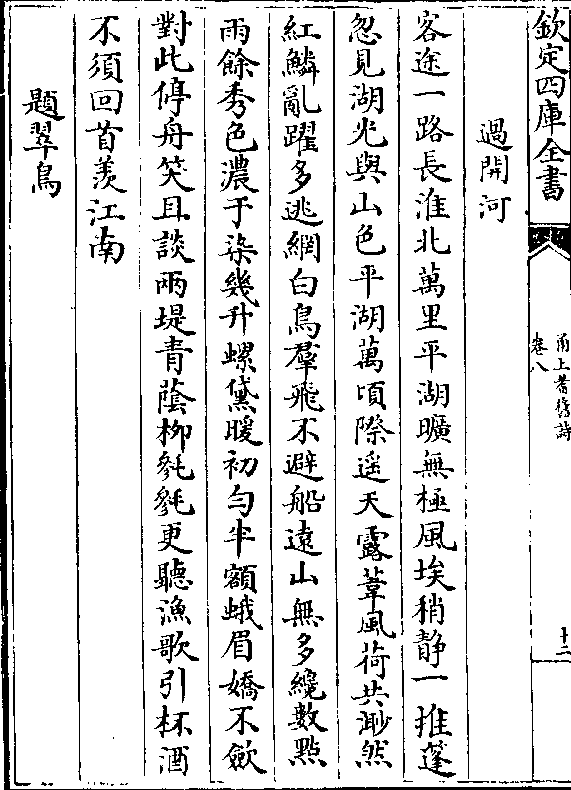 欽定四庫全書
甬上耆舊詩
卷八
十二
過開河
客途一路長淮北萬里平湖曠無極風埃稍静一推蓬
忽見湖光與山色平湖萬頃際遥天露葦風荷共渺然
紅鱗亂躍多逃網白鳥羣飛不避船遠山無多纔數點
雨餘秀色濃于染幾升螺黛暖初勻半額蛾眉嬌不歛
對此停舟笑且談兩堤青蔭柳毿毿更聽漁歌引杯酒
不須回首羨江南
題翠鳥